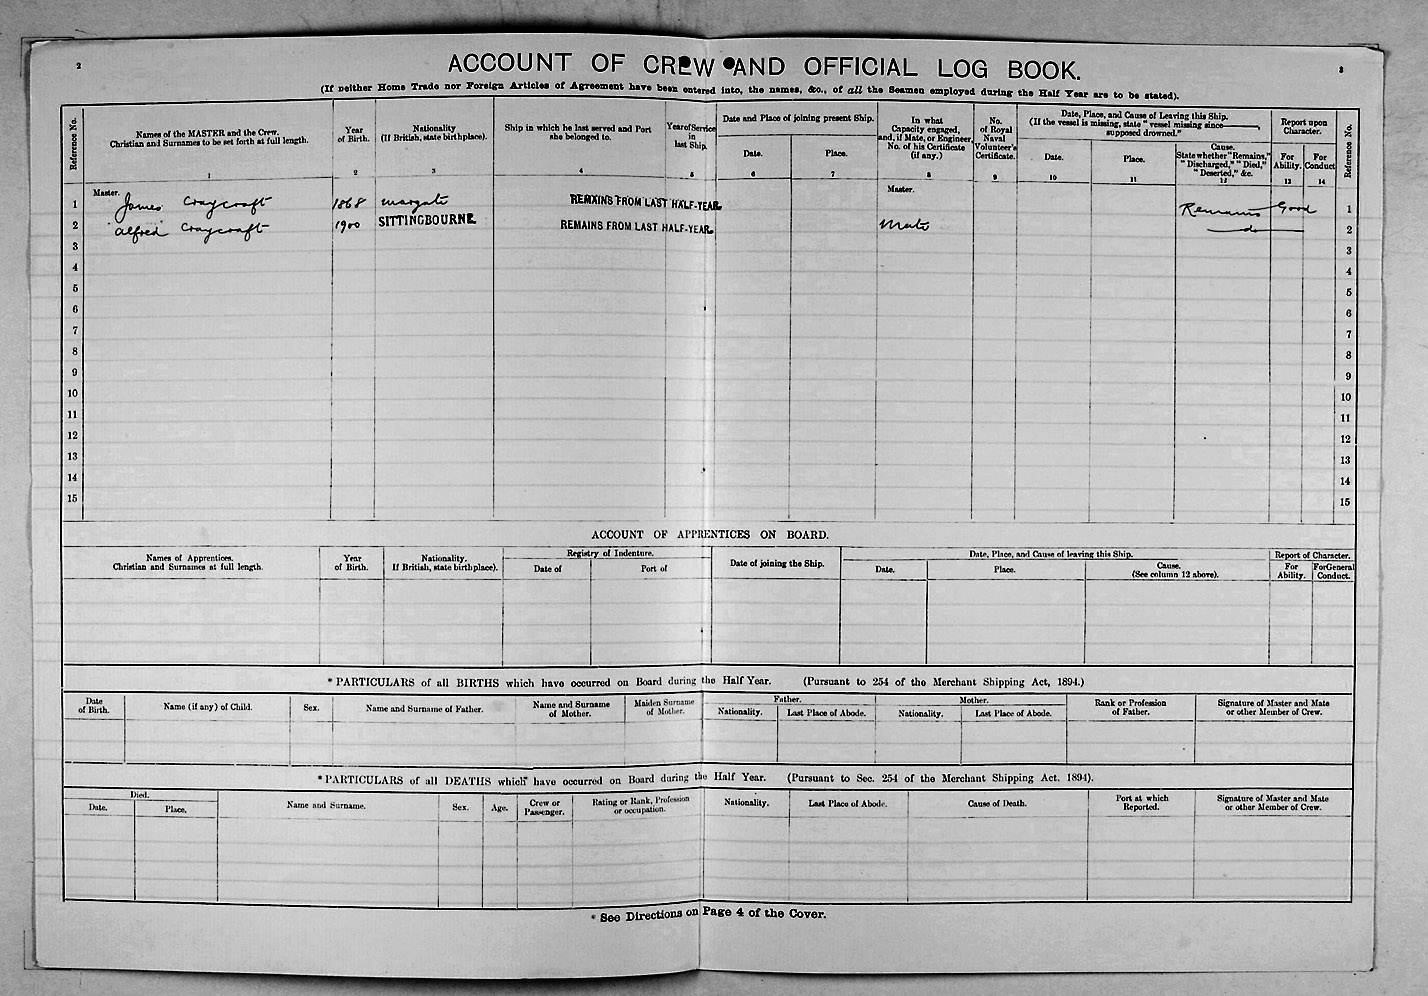 2
ACCOUNT OF CREW AND OFFICIAL LOG BOOK.
3
(If neither Home Trade nor Foreign Articles of Agreement have been entered into, the names, &c., of all the Seamen employed during the Half Year are to be stated).
Reference No.
Names of the MASTER and the Crew.
Christian and Surnames to be set forth at full length.
1
Year
of Birth.
2
Nationality
(If British, state birthplace).
3
Ship in which he last served and Port
she belonged to.
4
Year of Service
in
last Ship.
5
Date and Place of joining present Ship.
Date.
6
Place.
7
In what
Capacity engaged,
and, if Mate, or Engineer,
No. of his Certificate
(if any.)
8
No.
of Royal
Naval
Volunteer's
Certificate.
9
Date, Place, and Cause of Leaving this Ship.
(If the vessel is missing, state "vessel missing since
supposed drowned."
Date.
10
Place.
11
Cause.
State whether "Remains,"
"Discharged," "Died,"
"Deserted," &c.
12
Report upon
Character.
For
Ability.
13
For
Conduct
14
Reference No.
Master.
Master.
1 James Craycraft 1868 Margate REMAINS FROM LAST HALF-YEAR. Remains Good 1
2 Alfred Craycraft 1900 SITTINGBOURNE REMAINS FROM LAST HALF-YEAR. Mate do 2
3 3
4 4
5 5
6 6
7 7
8 8
9 9
10 10
11 11
12 12
13 13
14 14
15 15
ACCOUNT OF APPRENTICES ON BOARD.
Names of Apprentices.
Christian and Surnames at full length.
Year
of Birth.
Nationality.
If British, state birthplace).
Registry of Indenture.
Date of
Port of
Date of joining the Ship.
Date, Place, and Cause of leaving this Ship.
Date.
Place.
Cause.
(See column 12 above).
Report of Character.
For
Ability.
For General
Conduct.
* PARTICULARS of all BIRTHS which have occurred on Board during the Half Year. (Pursuant to 254 of the Merchant Shipping Act, 1894.)
Date
of Birth.
Name (if any) of Child.
Sex.
Name and Surname of Father.
Name and Surname
of Mother.
Maiden Surname
of Mother.
Father.
Nationality.
Last Place of Abode.
Mother.
Nationality.
Last Place of Abode.
Rank or Profession
of Father.
Signature of Master and Mate
or other Member of Crew.
* PARTICULARS of all DEATHS which have occurred on Board during the Half Year. (Pursuant to Sec. 254 of the Merchant Shipping Act. 1894).
Died.
Date.
Place.
Name and Surname.
Sex.
Age.
Crew or
Passenger.
Rating or Rank, Profession
or occupation.
Nationality.
Last Place of Abode.
Cause of Death.
Port at which
Reported.
Signature of Master and Mate
or other Member of Crew.
* See Directions on Page 4 of the Cover.